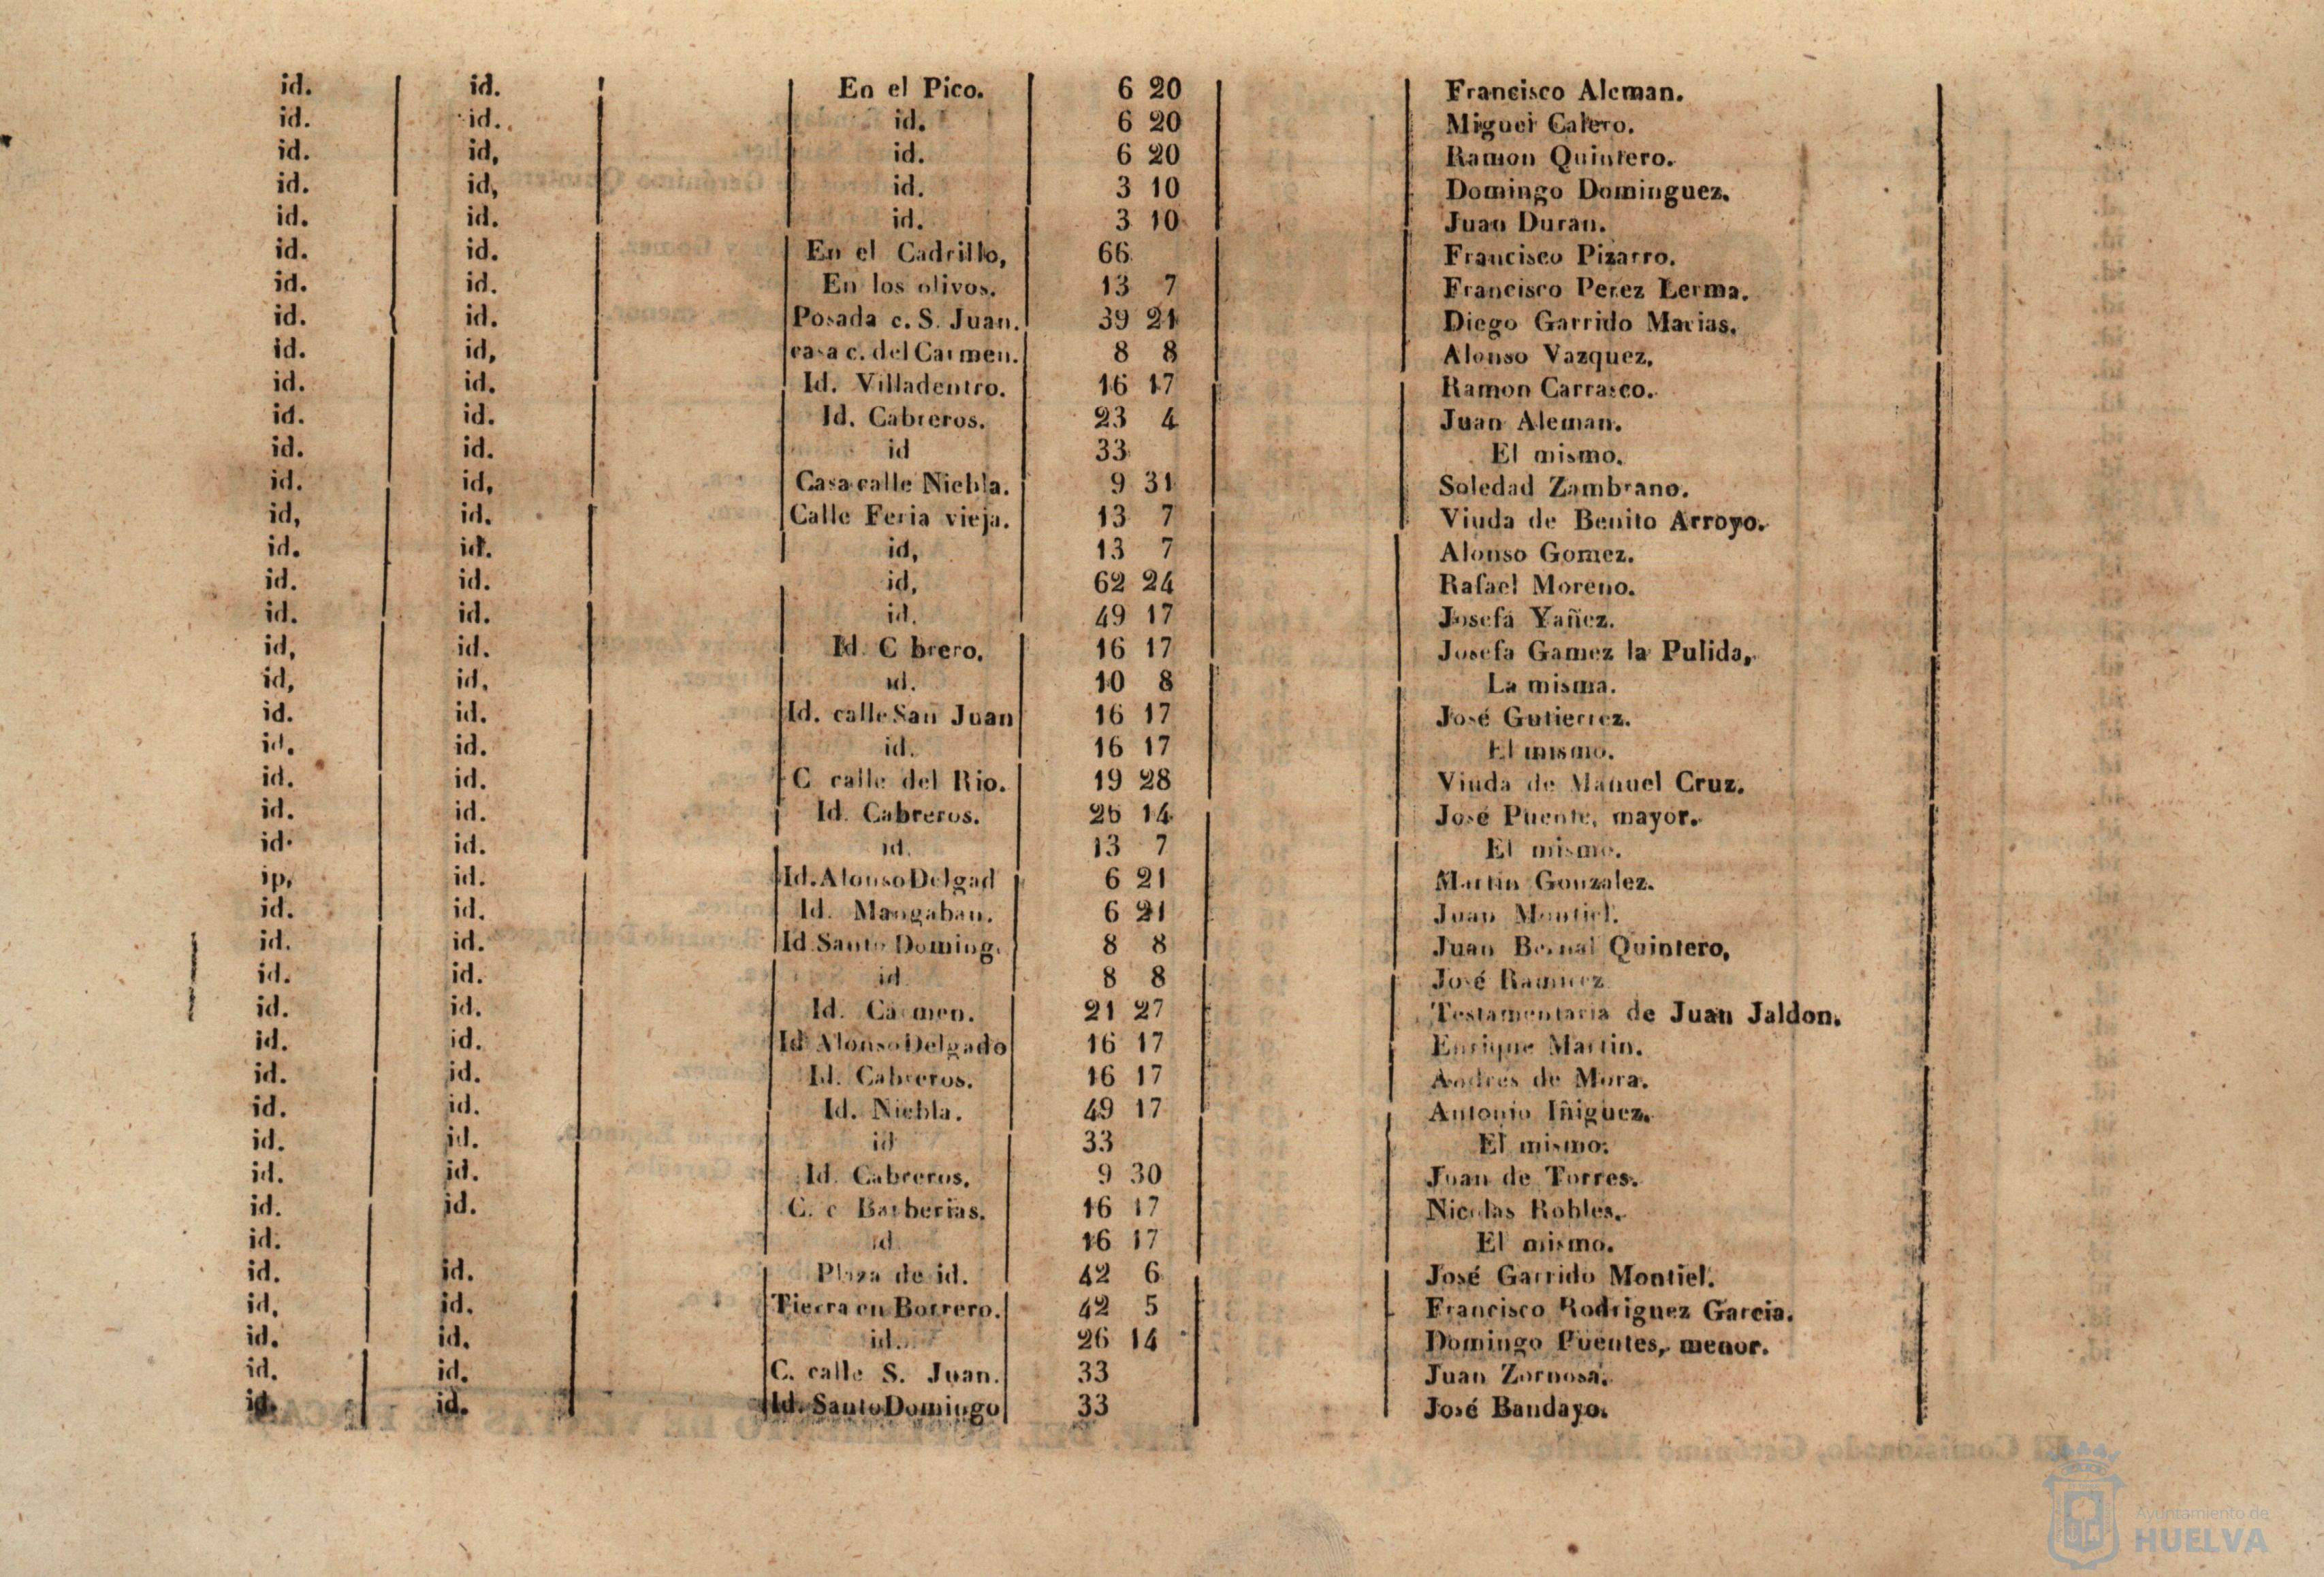 id. id. En el Pico. 6 20 Francisco Aleman.
id. id. id. 6 20 Miguel Calero.
id. id, id. 6 20 Ramon Quintero.
id. id, id. 3 10 Domingo Dominguez.
id. id. id. 3 10 Juan Duran.
id. id. En el Cadrillo, 66 Francisco Pizarro.
id. id. En los olivos. 13 7 Francisco Perez Lerma.
id. id. Posada c. S. Juan. 39 21 Diego Garrido Macias.
id. id, casa c. del Carmen. 8 8 Alonso Vazquez.
id. id. Id. Villadentro. 16 17 Ramon Carrasco.
id. id. Id. Cabreros. 23 4 Juan Aleman.
id. id. id 33 El mismo.
id. id, Casa calle Niebla. 9 31 Soledad Zambrano.
id, id. Calle Feria vieja. 13 7 Viuda de Benito Arroyo.
id. id. id, 13 7 Alonso Gomez.
id. id. id, 62 24 Rafael Moreno.
id. id. id. 49 17 Josefa Yañez.
id, id. Id. C brero. 16 17 Josefa Gamez la Pulida,
id, id. id. 10 8 La misma.
id. id. Id. calle San Juan 16 17 José Gutierrez.
id. id. id. 16 17 El mismo.
id. id. C calle del Rio. 19 28 Viuda de Manuel Cruz.
id. id. Id. Cabreros. 26 14 José Puente, mayor.
id. id. id. 13 7 El mismo.
ip, id. Id. Alonso Delgad 6 21 Martin Gonzalez.
id. id. Id. Mangaban. 6 21 Juan Montiel.
id. id. Id. Santo Doming. 8 8 Juan Bernal Quintero,
id. id. id. 8 8 José Ramirez
id. id. Id. Carmen. 21 27 Testamentaria de Juan Jaldon.
id. id. Id. Alonso Delgado 16 17 Enrique Martin.
id. id. Id. Cabreros. 16 17 Andres de Mora.
id. id. Id. Niebla. 49 17 Antonio Iñiguez.
id. id. id 33 El mismo.
id. id. Id. Cabreros. 9 30 Juan de Torres.
id. id. C. c Barberias. 16 17 Nicolas Robles.
id. id 16 17 El mismo.
id. id. Plaza de id. 42 6 José Garrido Montiel.
id, id. Tierra en Borrero. 42 5 Francisco Rodriguez Garcia.
id. id. id. 26 14 Domingo Puentes, menor.
id. id. C. calle S. Juan. 33 Juan Zornosa.
id. id. Id. Santo Domingo 33 José Bandayo.
Ayuntamiento de
HUELVA